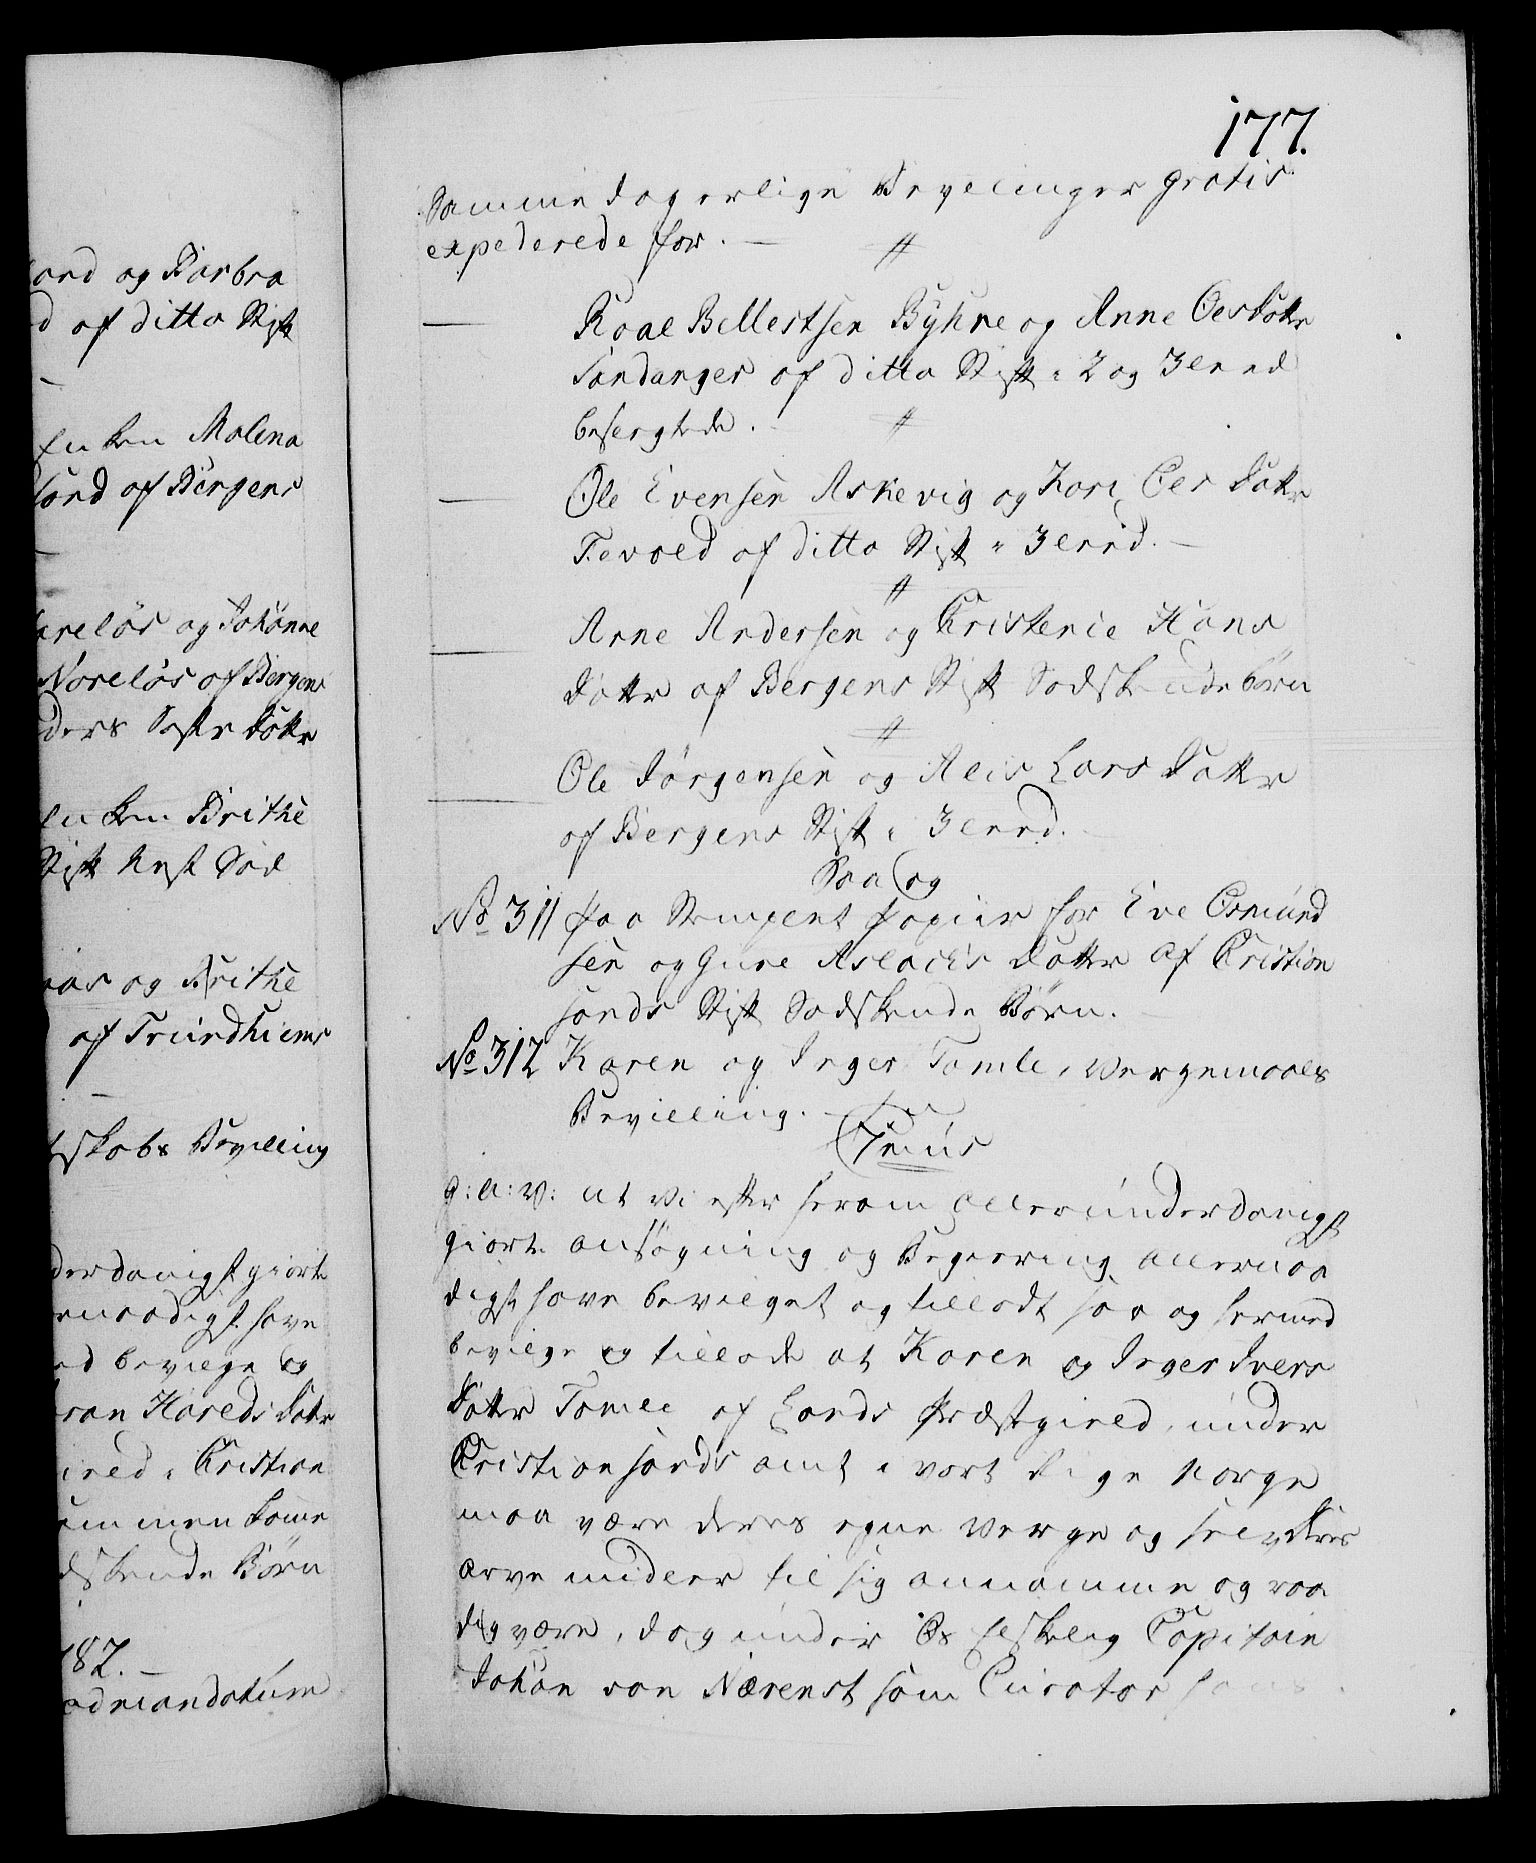 177.
Samme dag erlige Bevelinger gratis
expederede for. —
Roal Bellestsen Byhre og Anne Olsdotter
Sandanger af ditto Stift i 2 og 3 led
besergtede.
Ole Evensen Askevig og Kari Ols dotter
Tevoed af ditto Stift i 3 led. —
Arne Andersen og Cristenie Hans
dotter af Bergens Stift Sødskende børn
Ole Jørgensen og Alis Lars dotter
af Bergens Stift i 3 led. —
Saa og
No 311 paa Stemplent papiir for Eve Osmund
sen og Gure Aslachs dotter af Cristian
sands Stift Sødskende Børn. —
No 312 Karen og Inger Tomle, Vergemaals
Bevilling.
Genus
g: a: v: at vi efter herom allerunderdanigst
giorte ansøgning og Begiering allernaa
digst have bevilget og tilladt saa og hermed
bevilge og tillade at Karen og Inger Ivers
dotter Tomle af Lands Præstegield, under
Cristiansands amt i vort Rige Norge
maa være deres egne Verge og selv deres
arve midler til sig annamme og raa
dig være, dog under Os Elskelig Capitain
Johan von Nærenst som Curator
ord og Barbra
d af ditto Stift
Enken Malena
ford af Bergens
areløs og Johanne
Noreløs af Bergens
ders Søster dotter
Enken Brithe
Stift Nest Sød
as og Brithe
af Trundhiems
skobs Bevilling
derdanigst giorte
ernaadigst have
ed bevilge og
ran Hareds dotter
ield i Cristian
ammen komme
dskende Børn
182. —
ad mandatum